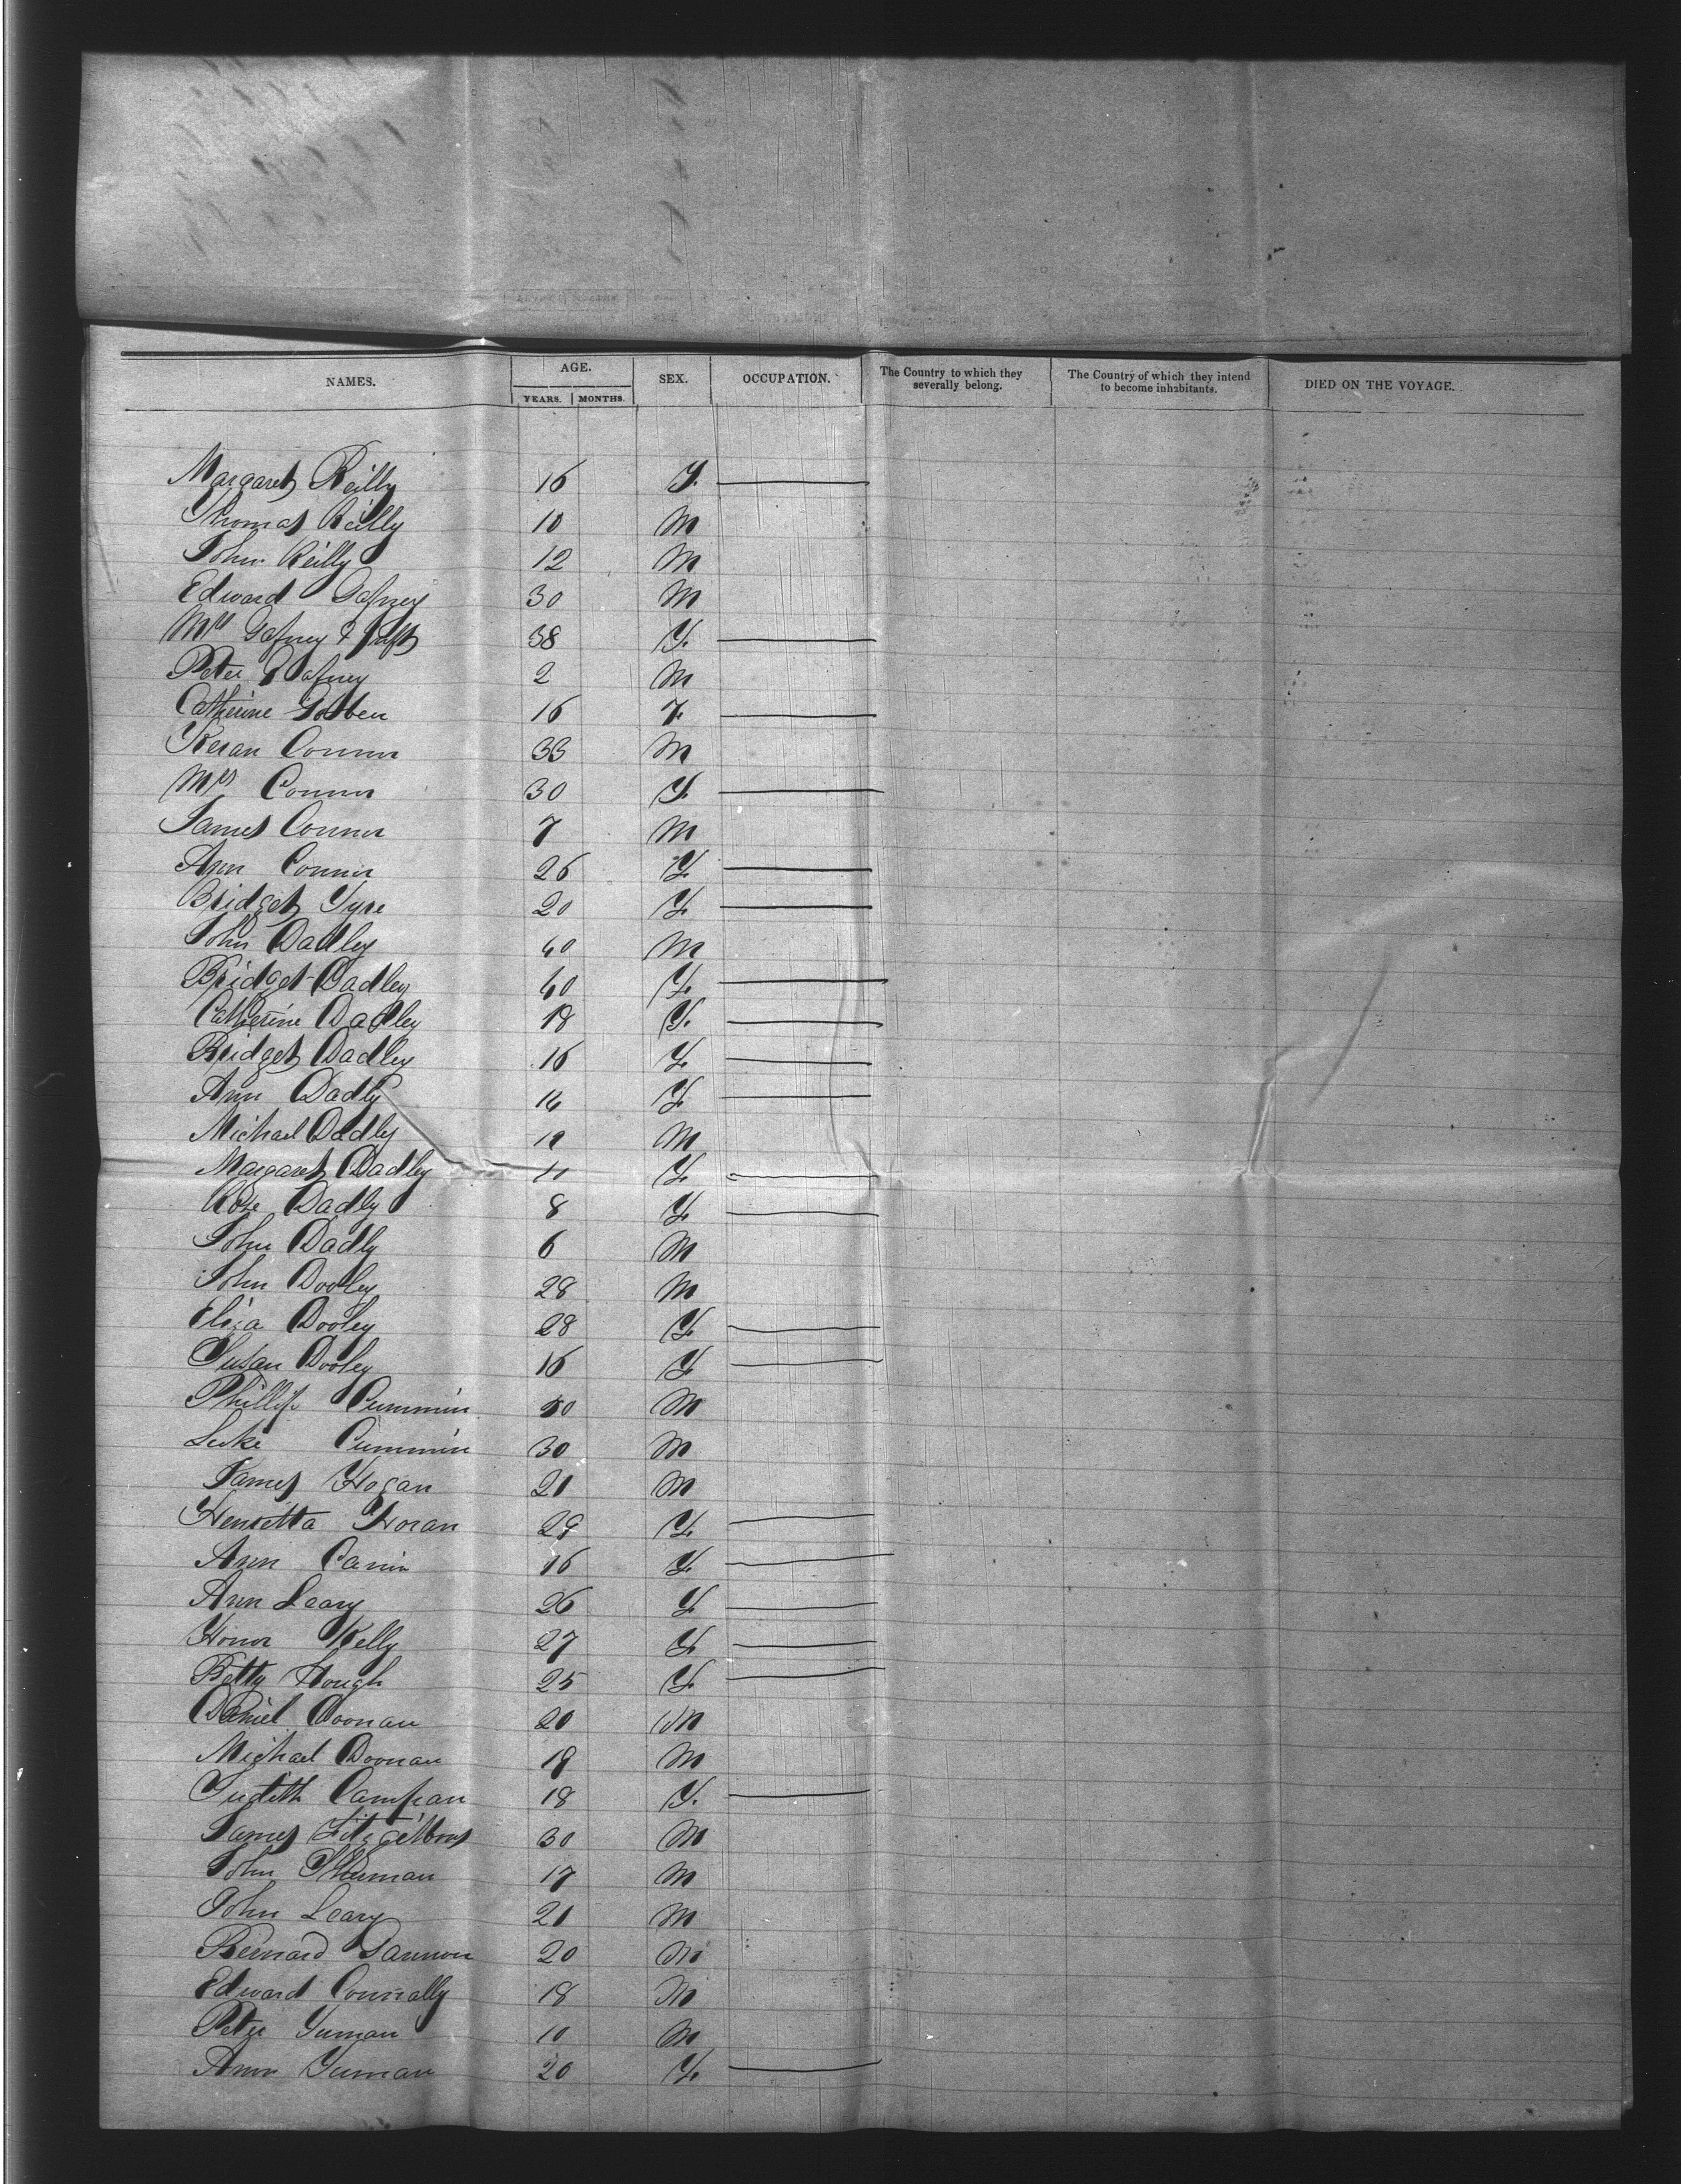 NAMES. AGE. SEX. OCCUPATION. The Country to which they severally belong. The Country of which they intend to become inhabitants. DIED ON THE VOYAGE.
YEARS. MONTHS.
Margaret Reilly 16 F.
Thomas Reilly 10 M
John Reilly 12 M
Edward Gafney 30 M
Mrs Gafney & Inft 38 F.
Peter Gafney 2 M
Catherine 16 F.
Keran Connor 33 M
Mrs Connor 30 F.
James Connor 7 M
Ann Connor 26 F.
Bridget Tyre 20 F.
John Dadley 40 M
Bridget Dadley 40 F.
Catherine Dadley 18 F.
Bridget Dadley 16 F.
Ann Dadly 14 F.
Michael Dadly M
Margaret Dadley 11 F.
Rose Dadly 8 F.
John Dadly 6 M
John Dooley 28 M
Eliza Dooley 28 F.
Susan Dooley 16 F.
Phillip Cummin M
Luke Cummin 30 M
James Hogan 21 M
Henretta Horan 29 F.
Ann 16 F.
Ann Leary 26 F.
Honor Kelly 27 F.
Betty Hough 25 F.
Daniel Doonan 20 M
Michael Doonan 18 M
Judith Campian 18 F.
James Fitzgibbons 30 M
John 17 M
John Leary 21 M
Bernard Gannon 20 M
Edward Connally 18 M
Peter 10 M
Ann 20 F.